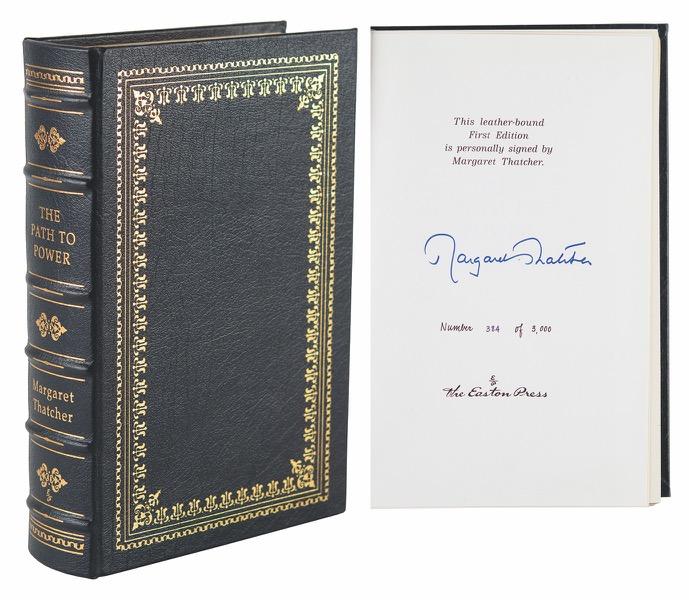 THE
PATH TO
POWER
Margaret
Thatcher
This leather-bound
First Edition
is personally signed by
Margaret Thatcher.
Margaret Thatcher
Number 384 of 3,000
The Easton Press